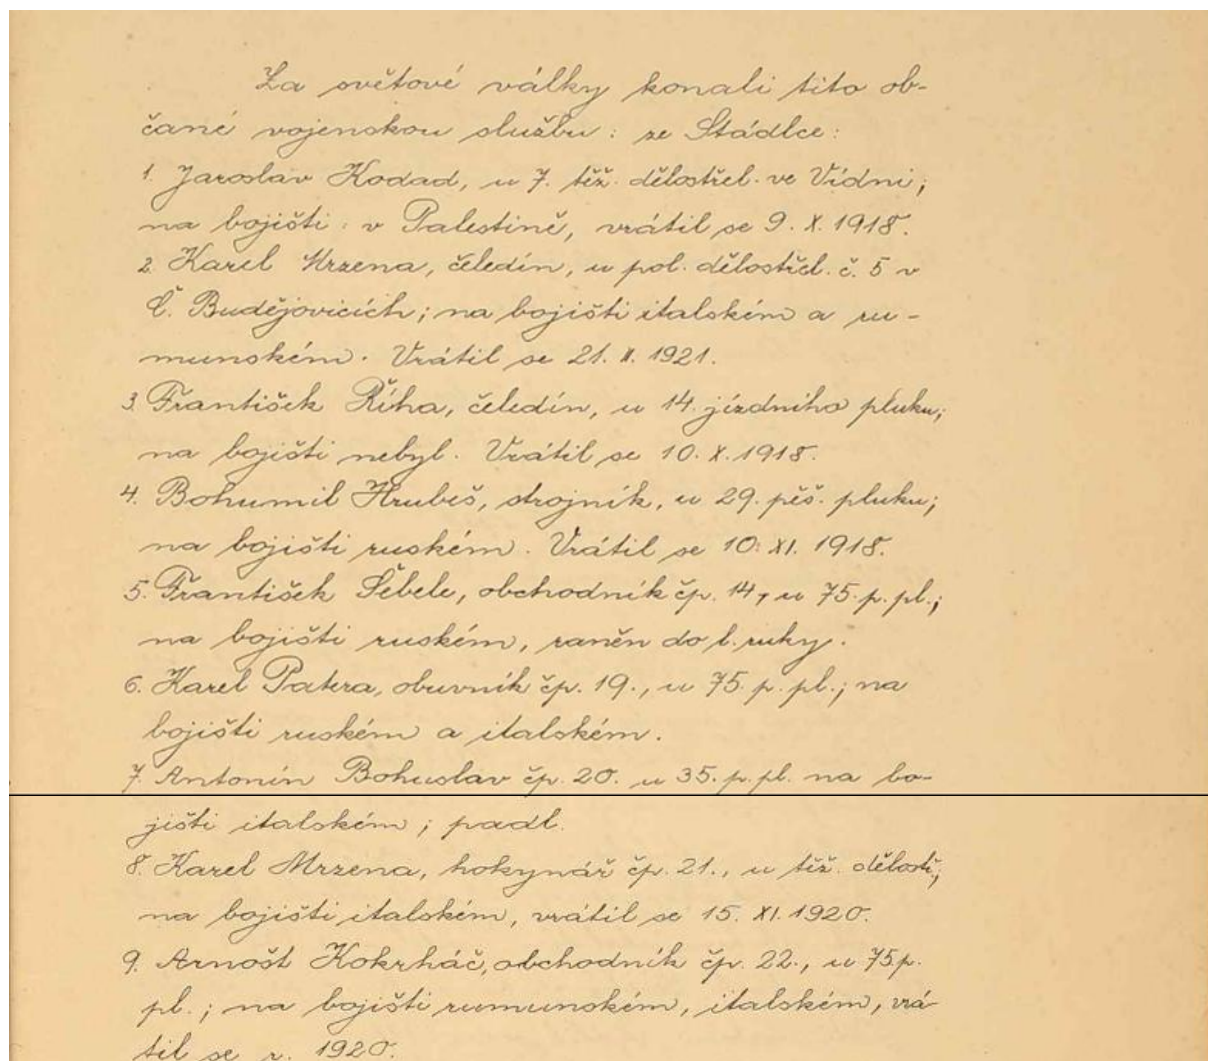 Za světové války konali tito ob-
čané vojenskou službu: ze Stádlce:
1. Jaroslav Kodad, u 7. těž. dělostřel. ve Vídni;
na bojišti: v Palestině, vrátil se 9. X. 1918.
2. Karel Mrzena, čeledín, u pol. dělostřel. č. 5 v
Č. Budějovicích; na bojišti italském a ru-
munském. Vrátil se 21. II. 1921.
3. František Říha, čeledín, u 14. jízdního pluku;
na bojišti nebyl. Vrátil se 10. X. 1918.
4. Bohumil Hrubeš, strojník, u 29. pěš. pluku;
na bojišti ruském. Vrátil se 10. XI. 1918.
5. František Šebele, obchodník čp. 14, u 75. p. pl.;
na bojišti ruském, raněn do l. ruky.
6. Karel Patera, obuvník čp. 19., u 75. p. pl.; na
bojišti ruském a italském.
7. Antonín Bohuslav čp. 20. u 35. p. pl. na bo-
jišti italském; padl.
8. Karel Mrzena, hokynář čp. 21., u těž. dělostř.;
na bojišti italském, vrátil se 15. XI. 1920.
9. Arnošt Kokrháč, obchodník čp. 22., u 75 p.
pl.; na bojišti rumunském, italském, vrá-
til se r. 1920.